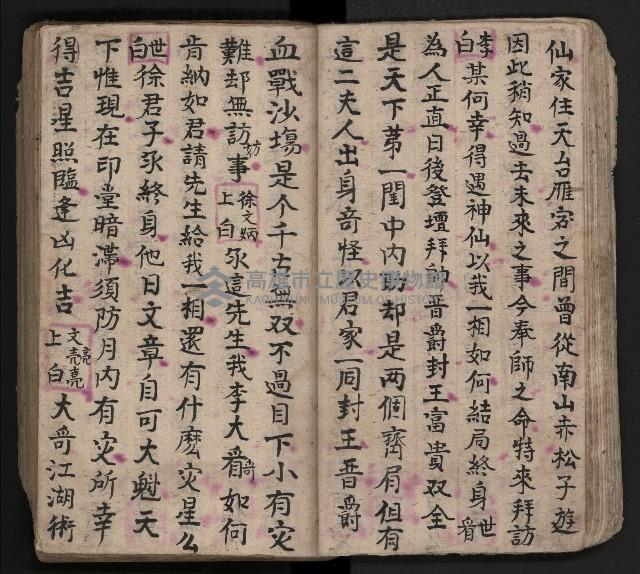 仙家住天台雁宕之間曾從南山赤松子遊
因此稍知過去未來之事今奉師之命特來拜訪
李白某何幸得遇神仙以我一相如何結局終身世看
為人正直日後登壇拜 晋爵封王富貴双全
是天下第一閨中内 却是两個齊眉但有
這二夫人出身奇怪 君家一同封王晋爵
血戰沙塲是个千古無双不過目下小有灾
難却無訪妨事徐文炳上白 這先生我李大看哥如何
肯納如君請先生給我一相還有什庅灾星么
世白徐君子 終身他日文章自可大魁天
下惟現在印堂暗滞須防月内有灾所幸
得吉星照臨逢凶化吉文亮上白大哥江湖術
高雄市立歷史博物館
KAOHSIUNG MUSEUM OF HISTORY